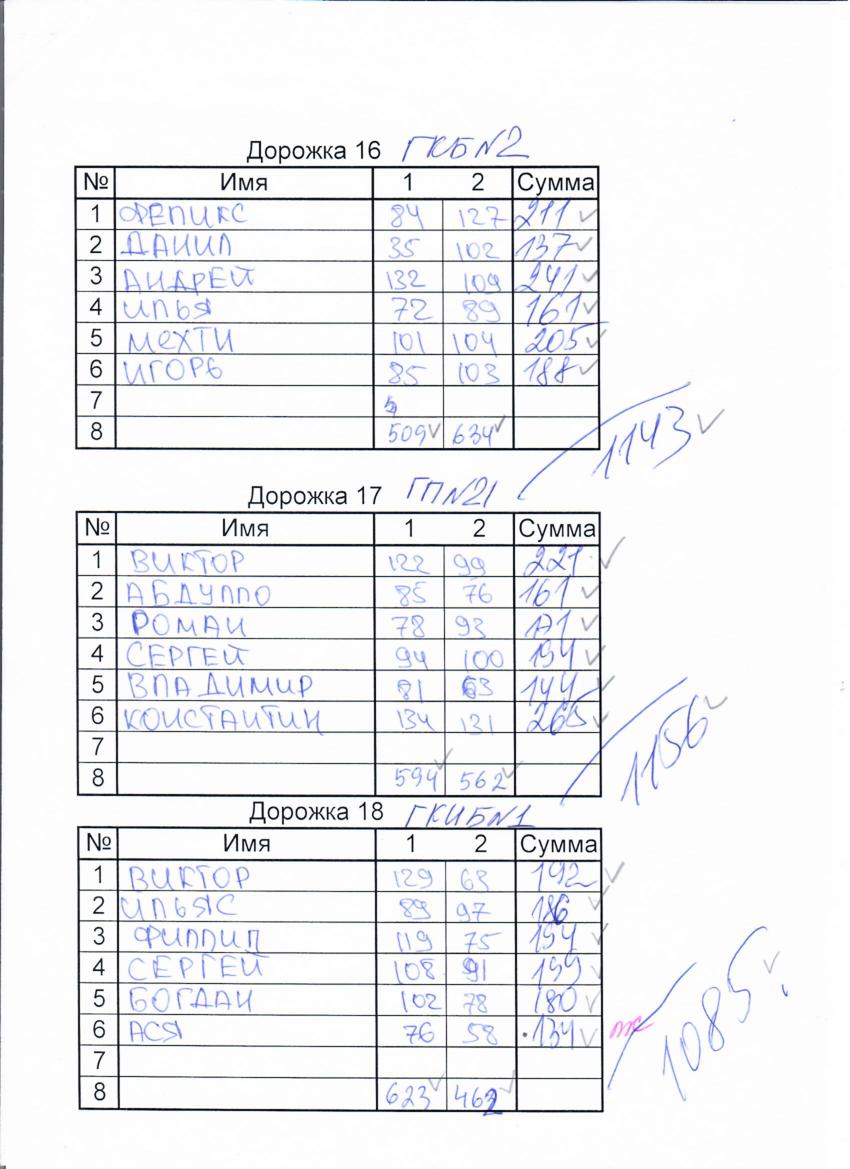 Дорожка 16 ГКБN2
№ Имя 1 2 Сумма
1 ФЕЛИКС 84 127 211
2 ДАНИЛ 35 102 137
3 АНДРЕЙ 132 109 241
4 ИЛЬЯ 72 89 161
5 МЕХТИ 101 104 205
6 ИГОРЬ 85 103 188
7
8 509 634
1143
Дорожка 17 ГПN21
№ Имя 1 2 Сумма
1 ВИКТОР 122 99 221
2 АБДУЛЛО 85 76 161
3 РОМАН 78 93 171
4 СЕРГЕЙ 94 100 194
5 ВЛАДИМИР 81 63 144
6 КОНСТАНТИН 134 131 265
7
8 594 562
1156
Дорожка 18 ГКИБN1
№ Имя 1 2 Сумма
1 ВИКТОР 129 63 192
2 ИЛЬЯС 89 97 186
3 ФИЛЛИП 119 75 194
4 СЕРГЕЙ 108 91 199
5 БОГДАН 102 78 180
6 АСЯ 76 58 134
7
8 623 462
1085